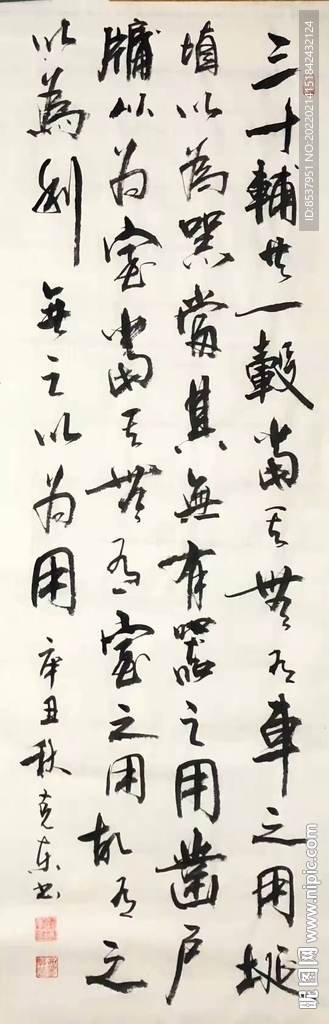 三十輻共一轂當其無有車之用埏
埴以為器當其無有器之用鑿戶
牖以为室當其無有室之用故有之
以為利 無之以为用 庚丑秋克东书
ID:8537951 NO:20220214151842432124
昵图网 www.nipic.com